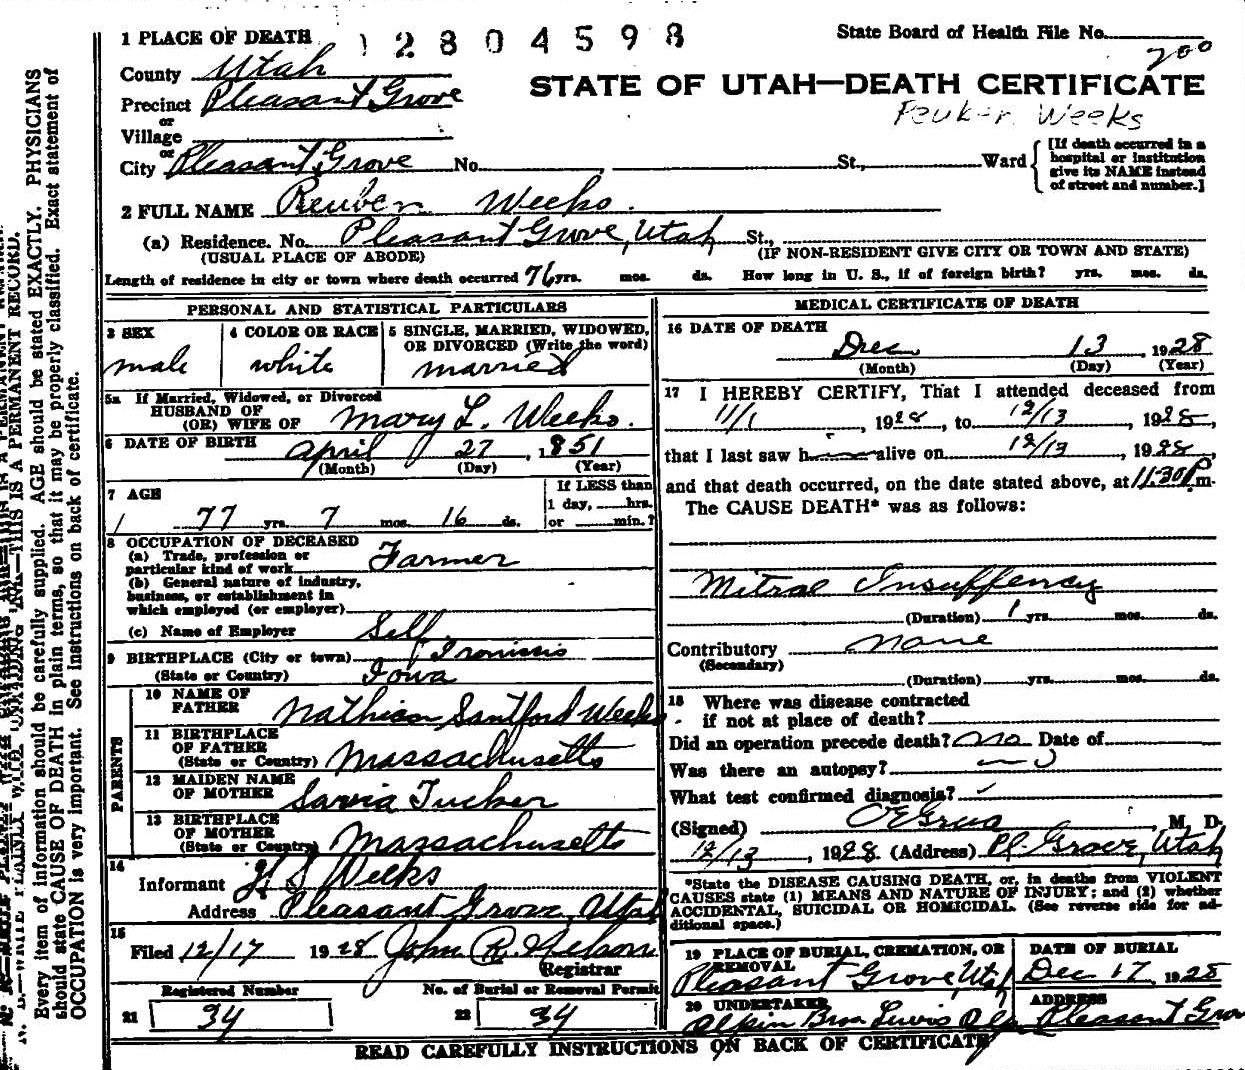 1 PLACE OF DEATH 12804598 State Board of Health File No.
200
County Utah
STATE OF UTAH—DEATH CERTIFICATE
Precinct Pleasant Grove
or
Weeks
Village
or
City Pleasant Grove No. St., Ward [If death occurred in a hospital or institution give its NAME instead of street and number.]
2 FULL NAME Reuben Weeks.
(a) Residence. No. Pleasant Grove, Utah St.,
(USUAL PLACE OF ABODE) (IF NON-RESIDENT GIVE CITY OR TOWN AND STATE)
Length of residence in city or town where death occurred 76 yrs. mos. ds. How long in U. S., if of foreign birth? yrs. mos. ds.
PERSONAL AND STATISTICAL PARTICULARS
3 SEX 4 COLOR OR RACE 5 SINGLE, MARRIED, WIDOWED, OR DIVORCED (Write the word)
male white married
5a If Married, Widowed, or Divorced
HUSBAND OF
(OR) WIFE OF Mary L. Weeks.
6 DATE OF BIRTH April 27, 1851
(Month) (Day) (Year)
7 AGE If LESS than
1 day, hrs.
77 yrs. 7 mos. 16 ds. or min.?
8 OCCUPATION OF DECEASED
(a) Trade, profession or
particular kind of work Farmer
(b) General nature of industry,
business, or establishment in
which employed (or employer)
(c) Name of Employer Self
9 BIRTHPLACE (City or town)
(State or Country) Iowa
PARENTS
10 NAME OF
FATHER Nathian Santford Weeks
11 BIRTHPLACE
OF FATHER
(State or Country) Massachusetts
12 MAIDEN NAME
OF MOTHER Tucker
13 BIRTHPLACE
OF MOTHER
(State or Country) Massachusetts
14
Informant Weeks
Address Pleasant Grove, Utah
15
Filed 12/17 1928 John R.
Registrar
Registered Number No. of Burial or Removal Permit
21 34 22 34
MEDICAL CERTIFICATE OF DEATH
16 DATE OF DEATH
Dec 13, 1928
(Month) (Day) (Year)
17 I HEREBY CERTIFY, That I attended deceased from
11/1, 1928, to 12/13, 1928,
that I last saw h alive on 12/13, 1928,
and that death occurred, on the date stated above, at 11.30 P m.
The CAUSE DEATH* was as follows:
Mitral Insuffency
(Duration) 1 yrs. mos. ds.
Contributory none
(Secondary)
(Duration) yrs. mos. ds.
18 Where was disease contracted
if not at place of death?
Did an operation precede death? no Date of
Was there an autopsy?
What test confirmed diagnosis?
(Signed) , M. D.
12/13, 1928 (Address) Pl. Grove, Utah
*State the DISEASE CAUSING DEATH, or, in deaths from VIOLENT
CAUSES state (1) MEANS AND NATURE OF INJURY; and (2) whether
ACCIDENTAL, SUICIDAL OR HOMICIDAL. (See reverse side for ad-
ditional space.)
19 PLACE OF BURIAL, CREMATION, OR REMOVAL DATE OF BURIAL
Pleasant Grove, Utah Dec 17, 1928
20 UNDERTAKER ADDRESS
Pleasant Grov
READ CAREFULLY INSTRUCTIONS ON BACK OF CERTIFICATE
Every item of information should be carefully supplied. AGE should be stated EXACTLY. PHYSICIANS
should state CAUSE OF DEATH in plain terms, so that it may be properly classified. Exact statement of
OCCUPATION is very important. See instructions on back of certificate.